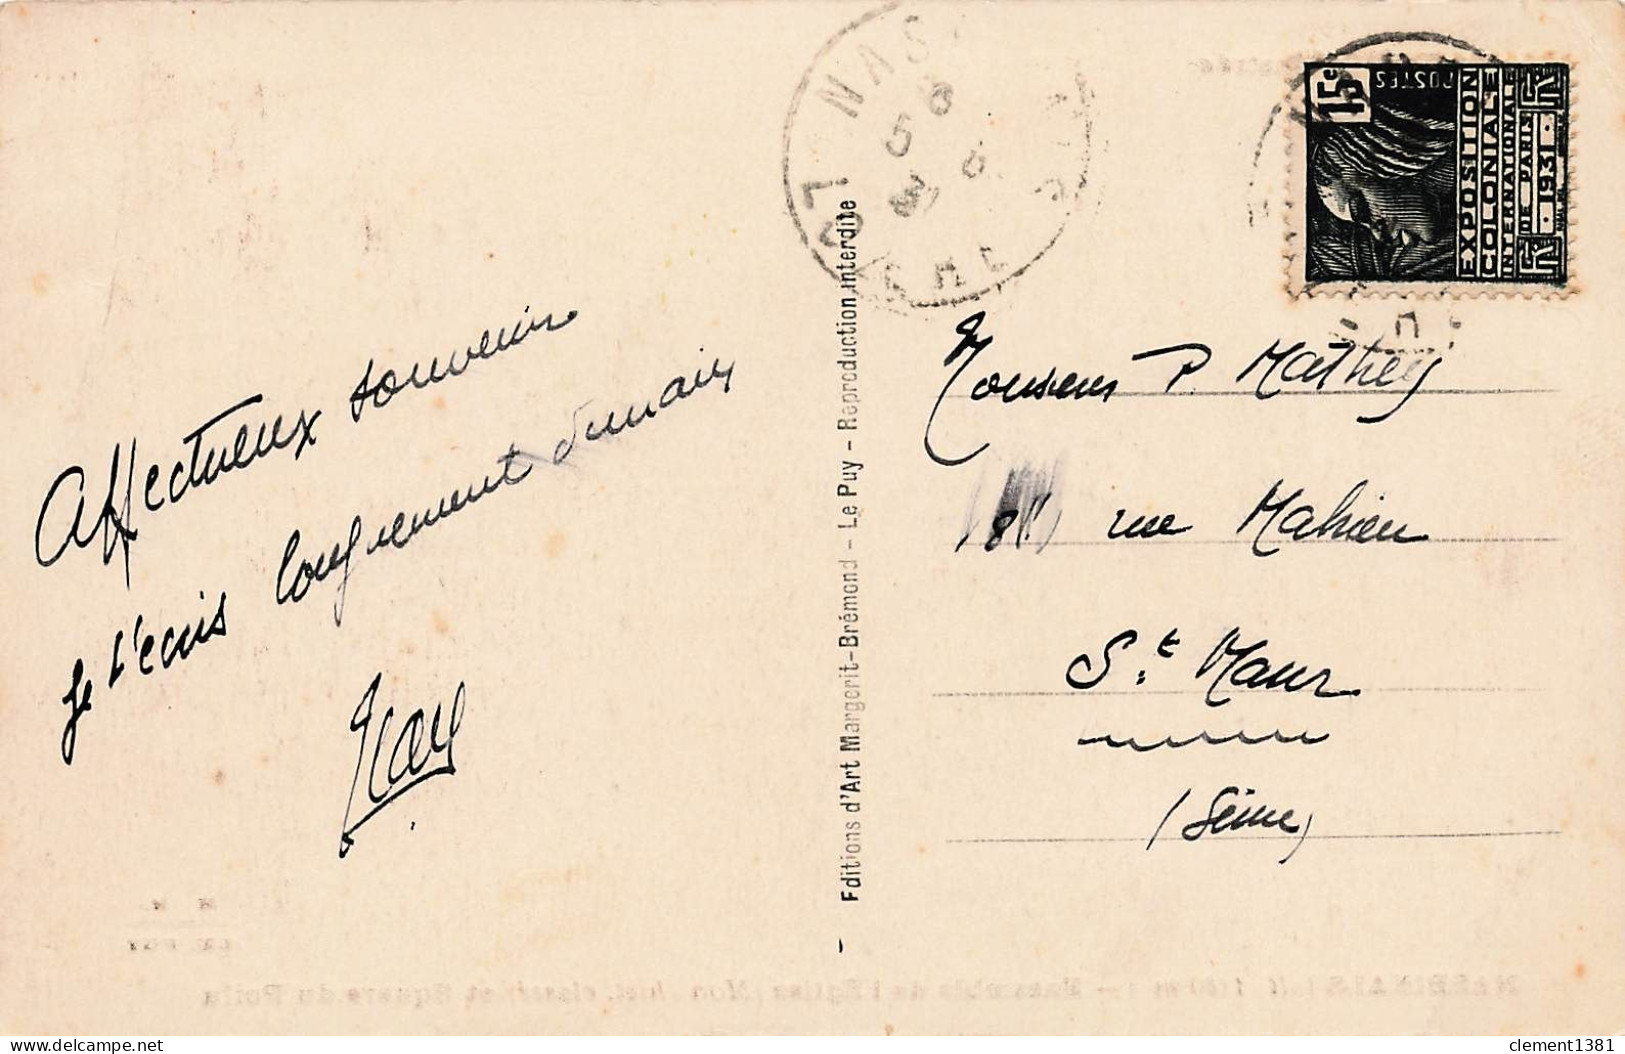 Affectueux souvenir
Je t'écris longuement demain
NAS
5 8
31
LOZÈRE
15c
POSTES
EXPOSITION
COLONIALE
INTERNATIONALE
DE PARIS
1931
Monsieur P. Mathey
rue Mahieu
St. Maur
(Seine)
Editions d'Art Margerit-Brémond - Le Puy - Reproduction interdite
clement1381